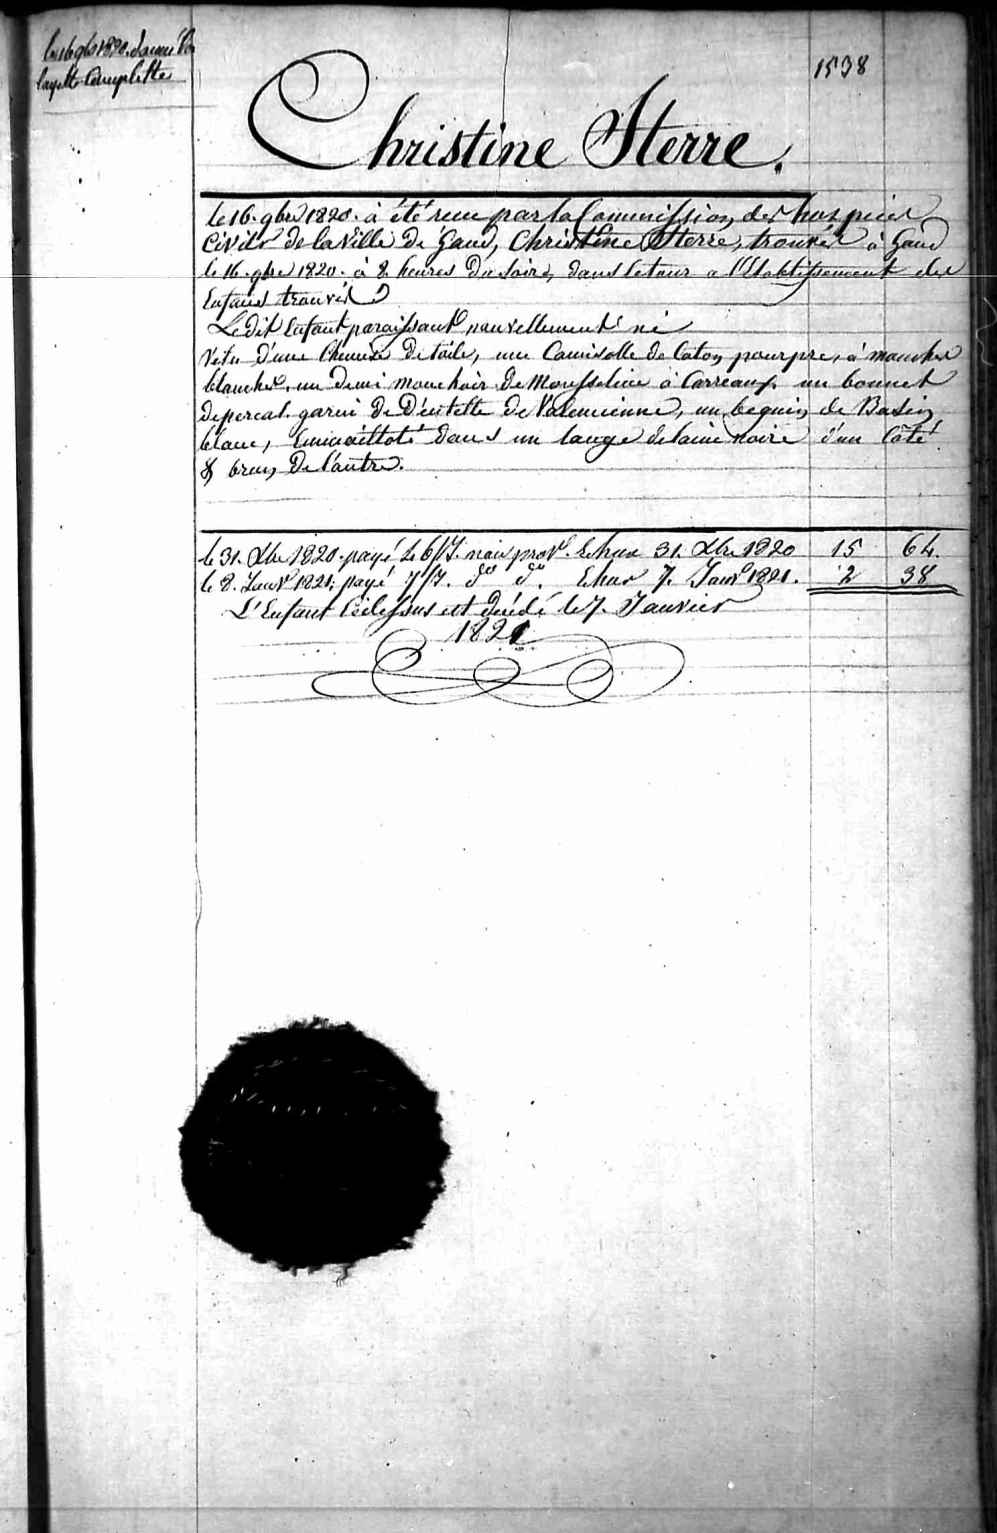 le 16 9bre 1820. donné la
layette Complette
1538
Christine Sterre.
le 16. 9bre 1820. à été recue par la Commission des hospices
Civils de la Ville de Gand, Christine Sterre, trouvée à Gand
le 16. 9bre 1820. à 8 heures du soire, dans le tour a l'Etablissement des
Enfans trouvés
Le dit Enfant paraissant nouvellement né
Vetu d'une Chemise de toile, une Camisolle de Coton pourpre, à manches
blanches, un demi mouchoir de Mousseline à Carreaux, un bonnet
de percal. garni de D'entelle de Valencienne, un beguin de Basin
blanc, Emmaillotté dans un lange de laine noire d'un Côté
& brun de l'autre.
le 31. Xbre 1820. payé le 6/7. mois provl. Echue 31. Xbre 1820 15 64.
le 8. Janvr 1821. payé 7/7. do do. Echue 7. Janvr 1821. 2 38
L'Enfant Cidessus est décédé le 7. Janvier
1821